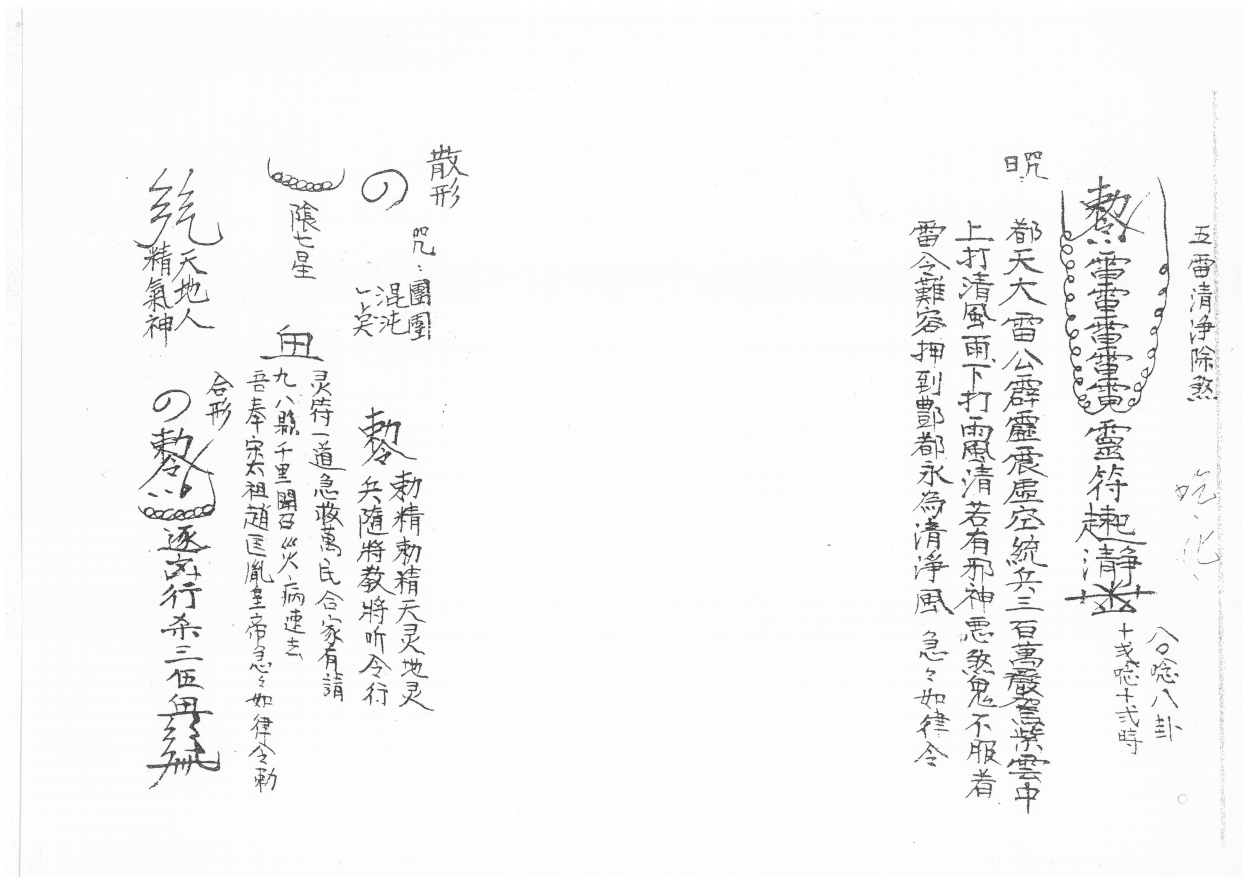 五雷清淨除煞
勅令雷雷雷雷雷靈符起清靜
八唸八卦
十弍唸十弍時
咒曰
都天大雷公霹靂震虛空統兵三百萬嚴駕紫雲中
上打清風雨下打雨風清若有邪神惡煞鬼不服者
雷令難容押到酆都永為清淨風 急々如律令
散形
咒
團團
混沌
勅令
勅精勅精天灵地灵
兵隨將教將听令行
七星
灵符一道急救萬民合家有請
九八縣千里開召災病速去
吾奉宋太祖趙匡胤皇帝急々如律令勅
天地人
精氣神
合形
勅令
逐 行杀三伍